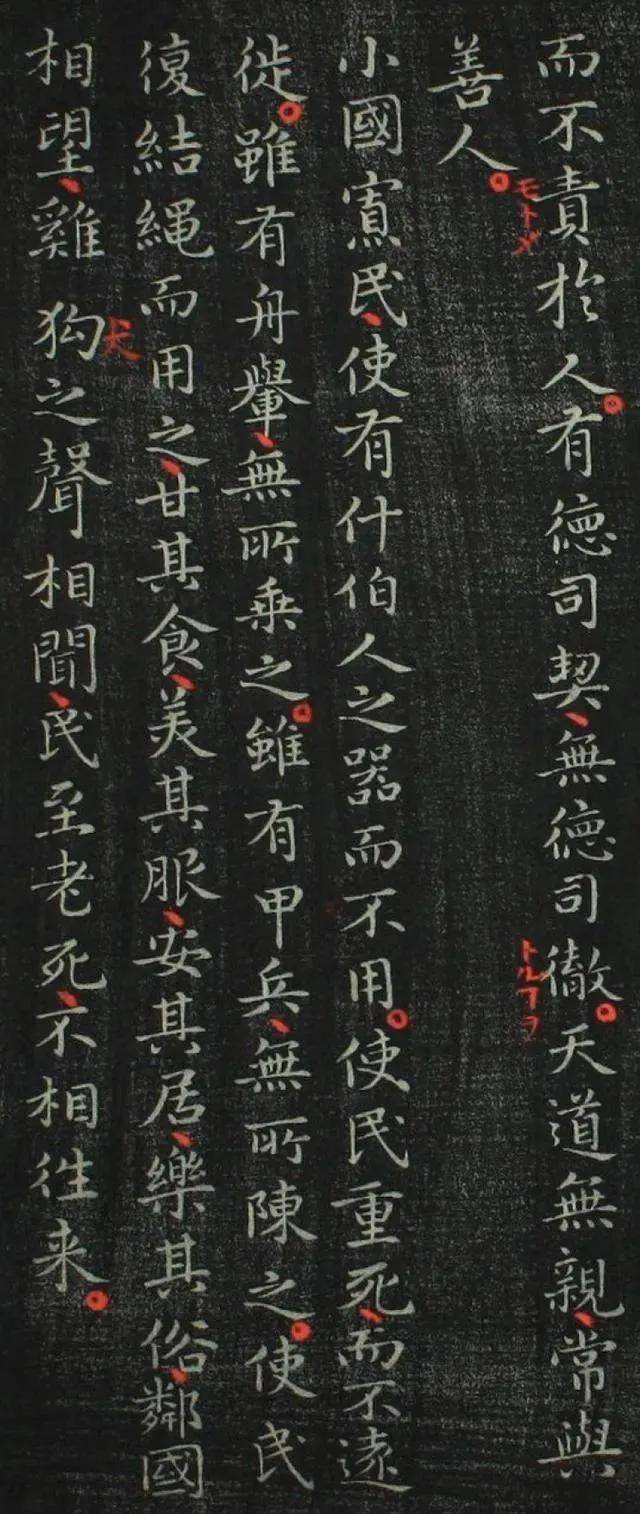 而不責於人。有徳司契、無徳司徹。天道無親、常與
モトメ
トルヿヲ
善人。
小國寡民、使有什伯人之器而不用。使民重死、而不遠
徙。雖有舟轝、無所乗之。雖有甲兵、無所陳之。使民
復結縄而用之、甘其食、美其服、安其居、樂其俗、鄰國
相望、雞狗之聲相聞、民至老死、不相往来。
犬